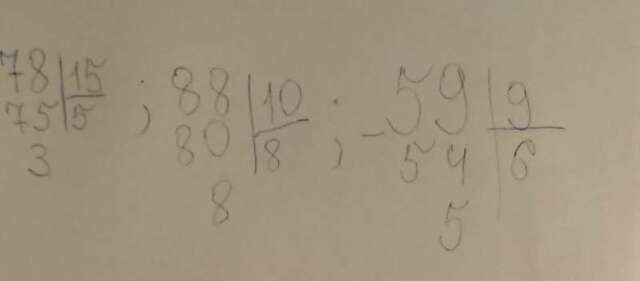 78|15 ; 88|10 ; -59|9
75|5 80|8 54|6
3 8 5